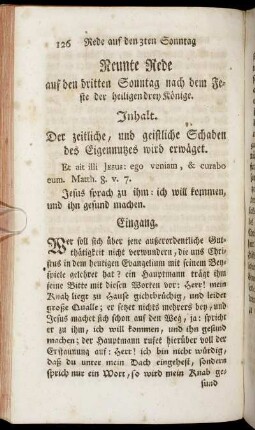 126 Rede auf den 3ten Sonntag
Neunte Rede
auf den dritten Sonntag nach dem Fe-
ste der heiligen drey Könige.
Inhalt.
Der zeitliche, und geistliche Schaden
des Eigennutzes wird erwäget.
Et ait illi JESUS: ego veniam, & curabo
eum. Matth. 8. v. 7.
Jesus sprach zu ihm: ich will kommen,
und ihn gesund machen.
Eingang.
Wer soll sich über jene außerordentliche Gut-
thätigkeit nicht verwundern, die uns Chri-
stus in dem heutigen Evangelium mit seinem Bey-
spiele gelehret hat? ein Hauptmann trägt ihm
seine Bitte mit diesen Worten vor: Herr! mein
Knab liegt zu Hause gichtbrüchig, und leidet
große Qualle; er setzet nichts mehrers bey, und
Jesus machet sich schon auf den Weg, ja: spricht
er zu ihm, ich will kommen, und ihn gesund
machen; der Hauptmann rufet hierüber voll der
Erstaunung auf: Herr! ich bin nicht würdig,
daß du unter mein Dach eingehest, sondern
sprich nur ein Wort, so wird mein Knab ge-
sund